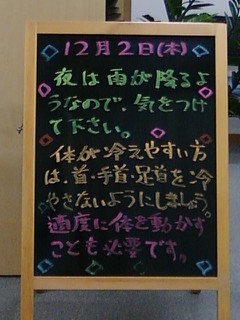 12月2日(木)
夜は雨が降るよ
うなので、気をつけ
て下さい。
体が冷えやすい方
は、首・手首・足首を冷
やさないようにしましょう。
適度に体を動かす
ことも必要です。